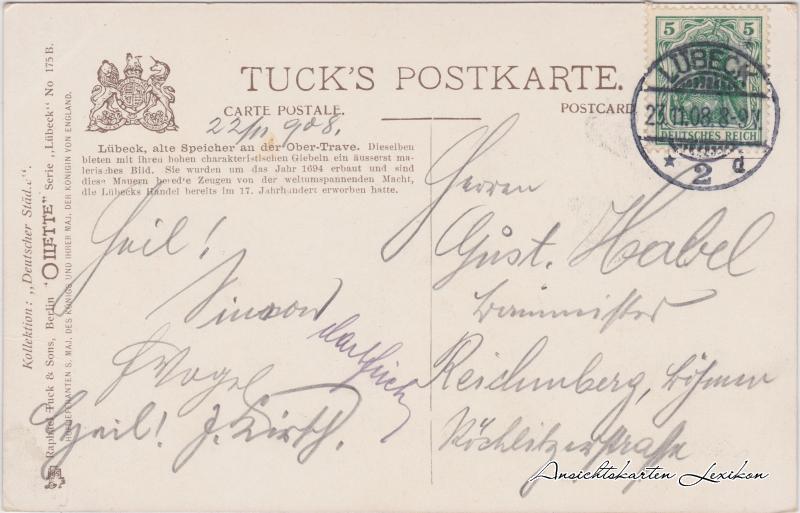 TUCK'S POSTKARTE.
CARTE POSTALE.
POSTCARD
22/11 908.
Lübeck, alte Speicher an der Ober-Trave. Dieselben
bieten mit ihren hohen charakteristischen Giebeln ein äusserst ma-
lerisches Bild. Sie wurden um das Jahr 1694 erbaut und sind
diese Mauern beredte Zeugen von der weltumspannenden Macht,
die Lübecks Handel bereits im 17. Jahrhundert erworben hatte.
Kollektion: „Deutscher Städte".
Raphael Tuck & Sons, Berlin "OILETTE" Serie „Lübeck" No 175 B.
HOFLIEFERANTEN S. MAJ. DES KÖNIGS UND IHRER MAJ. DER KÖNIGIN VON ENGLAND.
Heil!
Vogel
Heil! J. Kirsch.
Herren
Gust. Habel
Baumeister
Reichenberg, Böhmen
Röchlitzerstraße
5 5
DEUTSCHES REICH
LÜBECK
23.11.08.8-9V
* 2 d
Ansichtskarten Lexikon